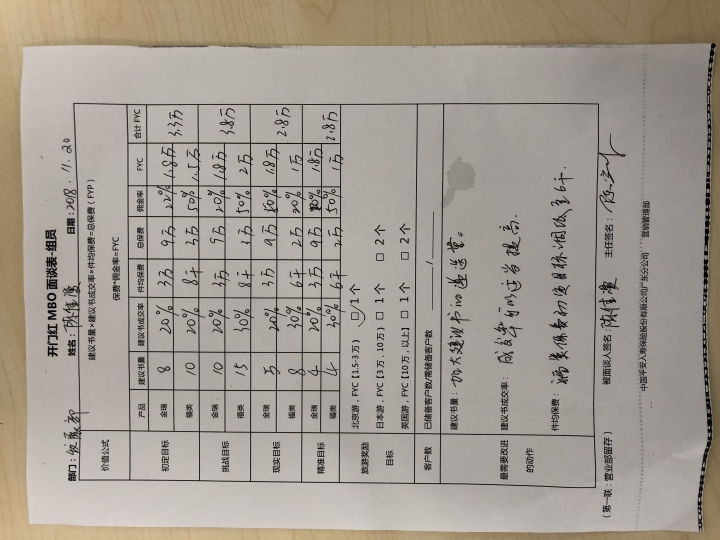 开门红 MBO 面谈表-组员
部门：发展部 姓名： 日期：2018.11.20
价值公式 建议书量×建议书成交率×件均保费=总保费（FYP）
保费*佣金率=FYC
产品 建议书量 建议书成交率 件均保费 总保费 佣金率 FYC 合计 FYC
初定目标 金瑞 8 20% 3万 9万 22% 1.8万 3.3万
福类 10 20% 8千 3万 50% 1.5万
挑战目标 金瑞 10 20% 3万 9万 20% 1.8万 3.8万
福类 15 30% 8千 3万 50% 2万
现实目标 金瑞 5 20% 3万 9万 1.8万 2.8万
福类 8 30% 6千 2万 1万
精准目标 金瑞 4 20% 3万 9万 1.8万 2.8万
福类 4 30% 6千 2万 50% 1万
旅游奖励 目标 北京游，FYC【1.5-3 万） □ 1个
日本游，FYC【3 万，10万） □ 1个 □ 2个
英国游，FYC【10 万，以上】 □ 1个 □ 2个
客户数 已储备客户数/需储备客户数 /
最需要改进的动作 建议书量： 加大建议书的递送量。
建议书成交率： 成交率可以适当提高.
件均保费： 福类保费初定目标调低至6千.
（第一联：营业部留存） 被面谈人签名： 主任签名：
中国平安人寿保险股份有限公司广东分公司 营销管理部